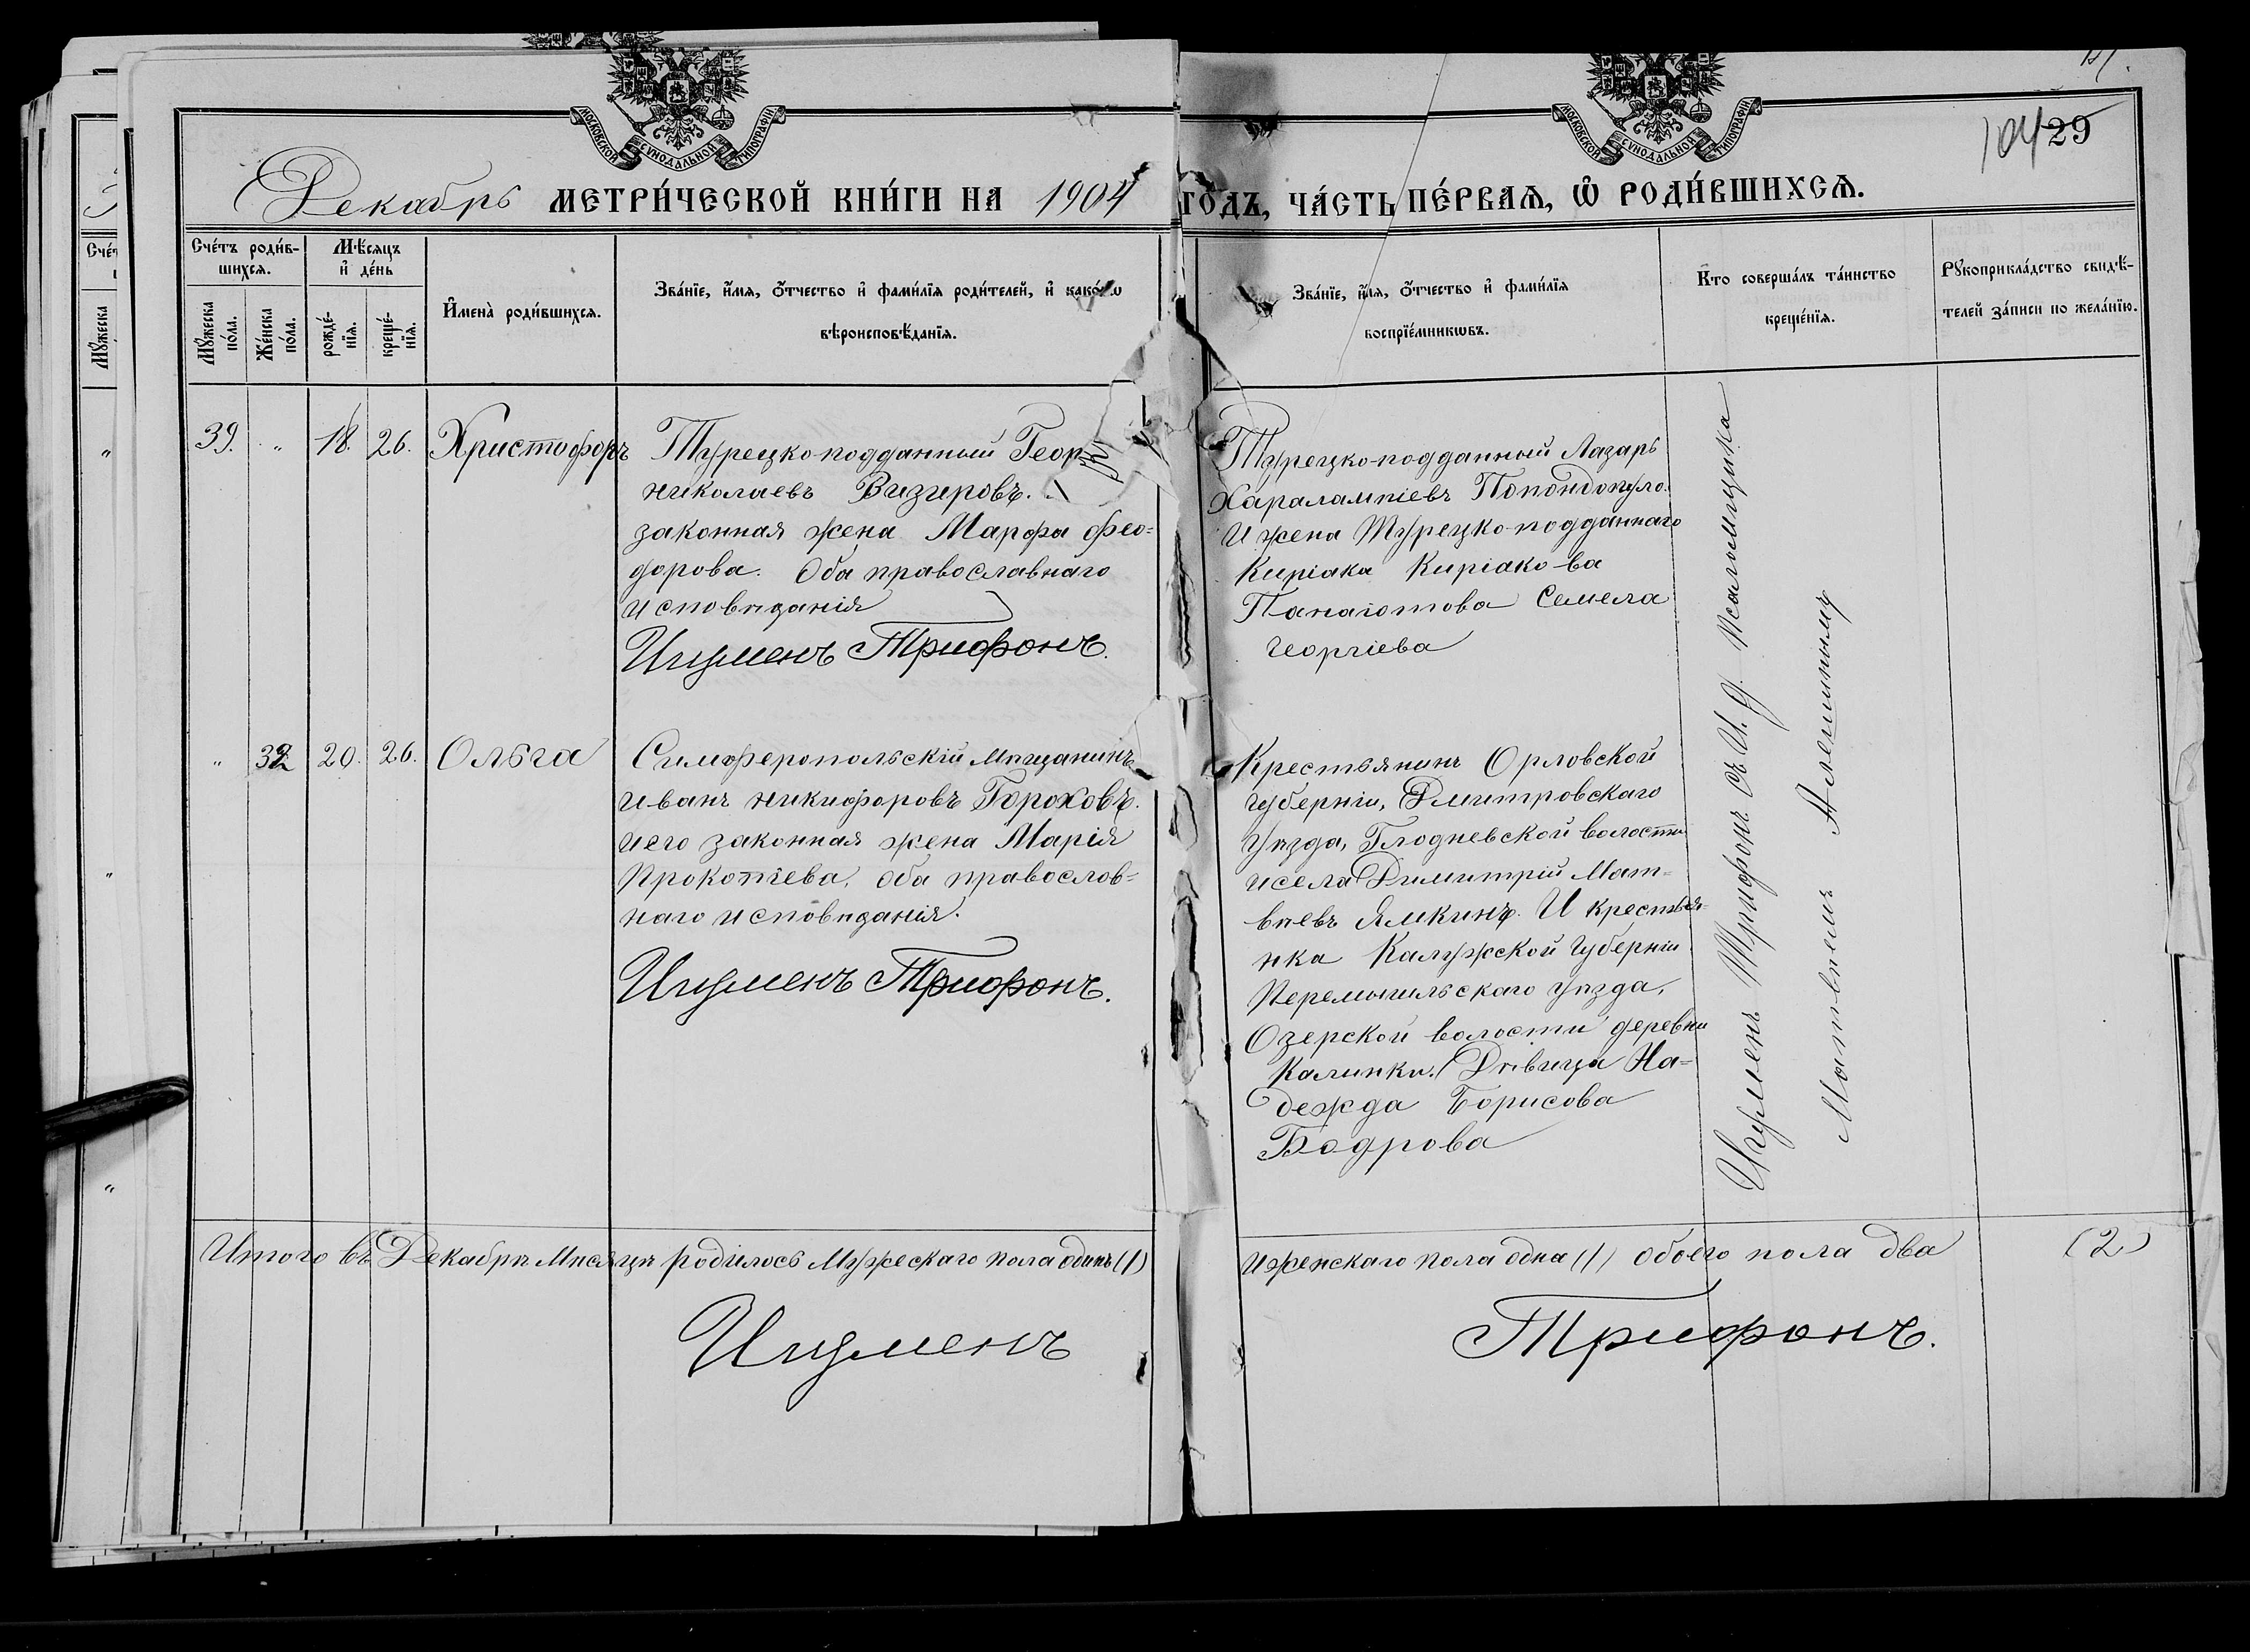 МОСКОВСКОЙ СѴНОДАЛЬНОЙ ТИПОГРАФІИ
МОСКОВСКОЙ СѴНОДАЛЬНОЙ ТИПОГРАФІИ
104 29
Декабрь МЕТРИ́ЧЕСКОЙ КНИ́ГИ НА 1904 ГО́ДЪ, ЧА́СТЬ ПЕ́РВАѦ, Ѽ РОДИ́ВШИХСѦ.
Сче́тъ роди́в-
шихсѧ.
Мꙋ́жеска по́ла.
Же́нска по́ла.
Мѣ́сяцъ и҆ де́нь
рожде́-нїѧ.
креще́-нїѧ.
И҆мена̀ роди́вшихсѧ.
Зва́нїе, и҆́мѧ, ѻ҆́тчество и҆ фами́лїѧ роди́телей, и҆ како́гѡ
вѣроисповѣ́данїѧ.
Зва́нїе, и҆́мѧ, ѻ҆́тчество и҆ фами́лїѧ
воспрїе́мникѡвъ.
Кто соверша́лъ та́инство
креще́нїѧ.
Рꙋкоприкла́дство свидѣ́-
телей за́писи по жела́нїю.
39. " 18. 26. Христофоръ
Турецко-подданный Геор
Николаевъ Визировъ.
законная жена Марфа Фео=
дорова. Оба православнаго
исповѣданія
Игуменъ Трифонъ.
Турецко-подданный Лазарь
Харалампіевъ Попондопуло.
И жена Турецко-подданнаго
Киріака Киріако-ва
Панаіотова Семела
Георгіева
" 32 20. 26. Ольга
Симферопольскій Мѣщанинъ
Иванъ Никифоровъ Гороховъ.
и его законная жена Марія
Прокопіева, оба православ=
наго исповѣданія.
Игуменъ Трифонъ.
Крестьянинъ Орловской
губерніи, Дмитровскаго
уѣзда, Глодневской волости
и села Димитрій Мат=
вѣевъ Ямкинъ. И крестья=
нка Калужской Губерніи
Перемышльскаго уѣзда,
Озерской волости деревни
Калинки. Дѣвица На=
дежда Борисова
Бодрова
Игуменъ Трифонъ съ И. д. Псаломщика
Матвѣемъ Алешинымъ
Итого въ Декабрѣ Мѣсяцѣ родилось Мужескаго пола одинъ (1) и женскаго пола одна (1) обоего пола два (2)
Игуменъ Трифонъ.